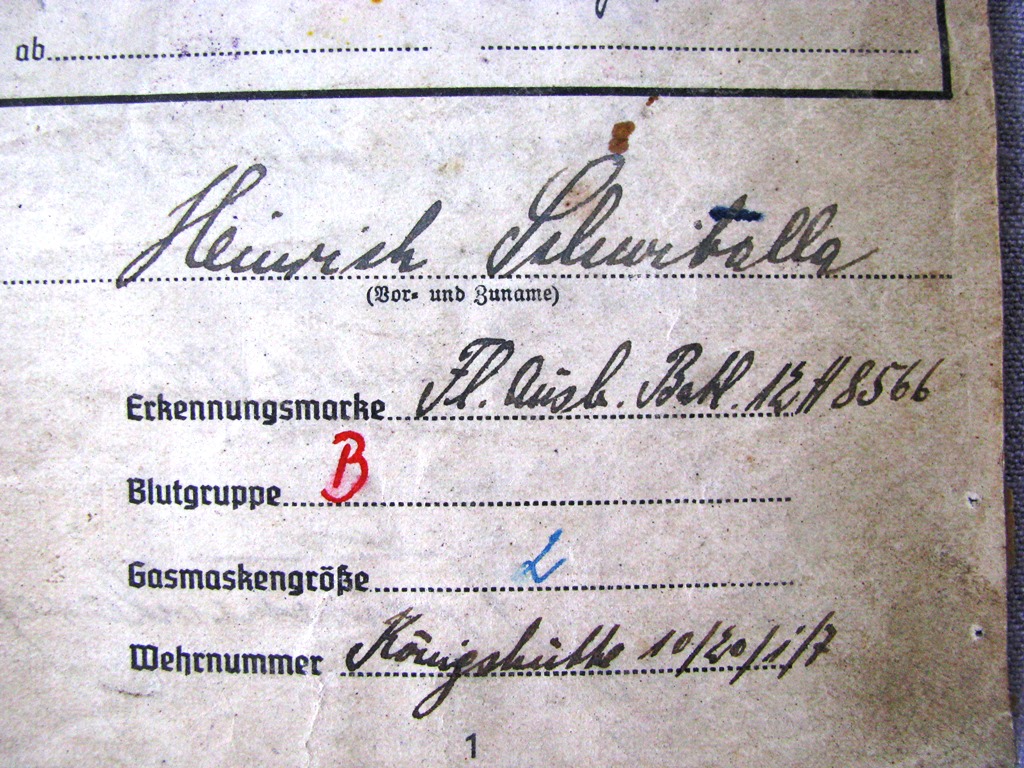 ab
Heinrich Schwitalla
(Vor- und Zuname)
Erkennungsmarke Fl. Ausb. Batl. 12 A 8566
Blutgruppe B
Gasmaskengröße
Wehrnummer Königshütte 10/20/1/7
1